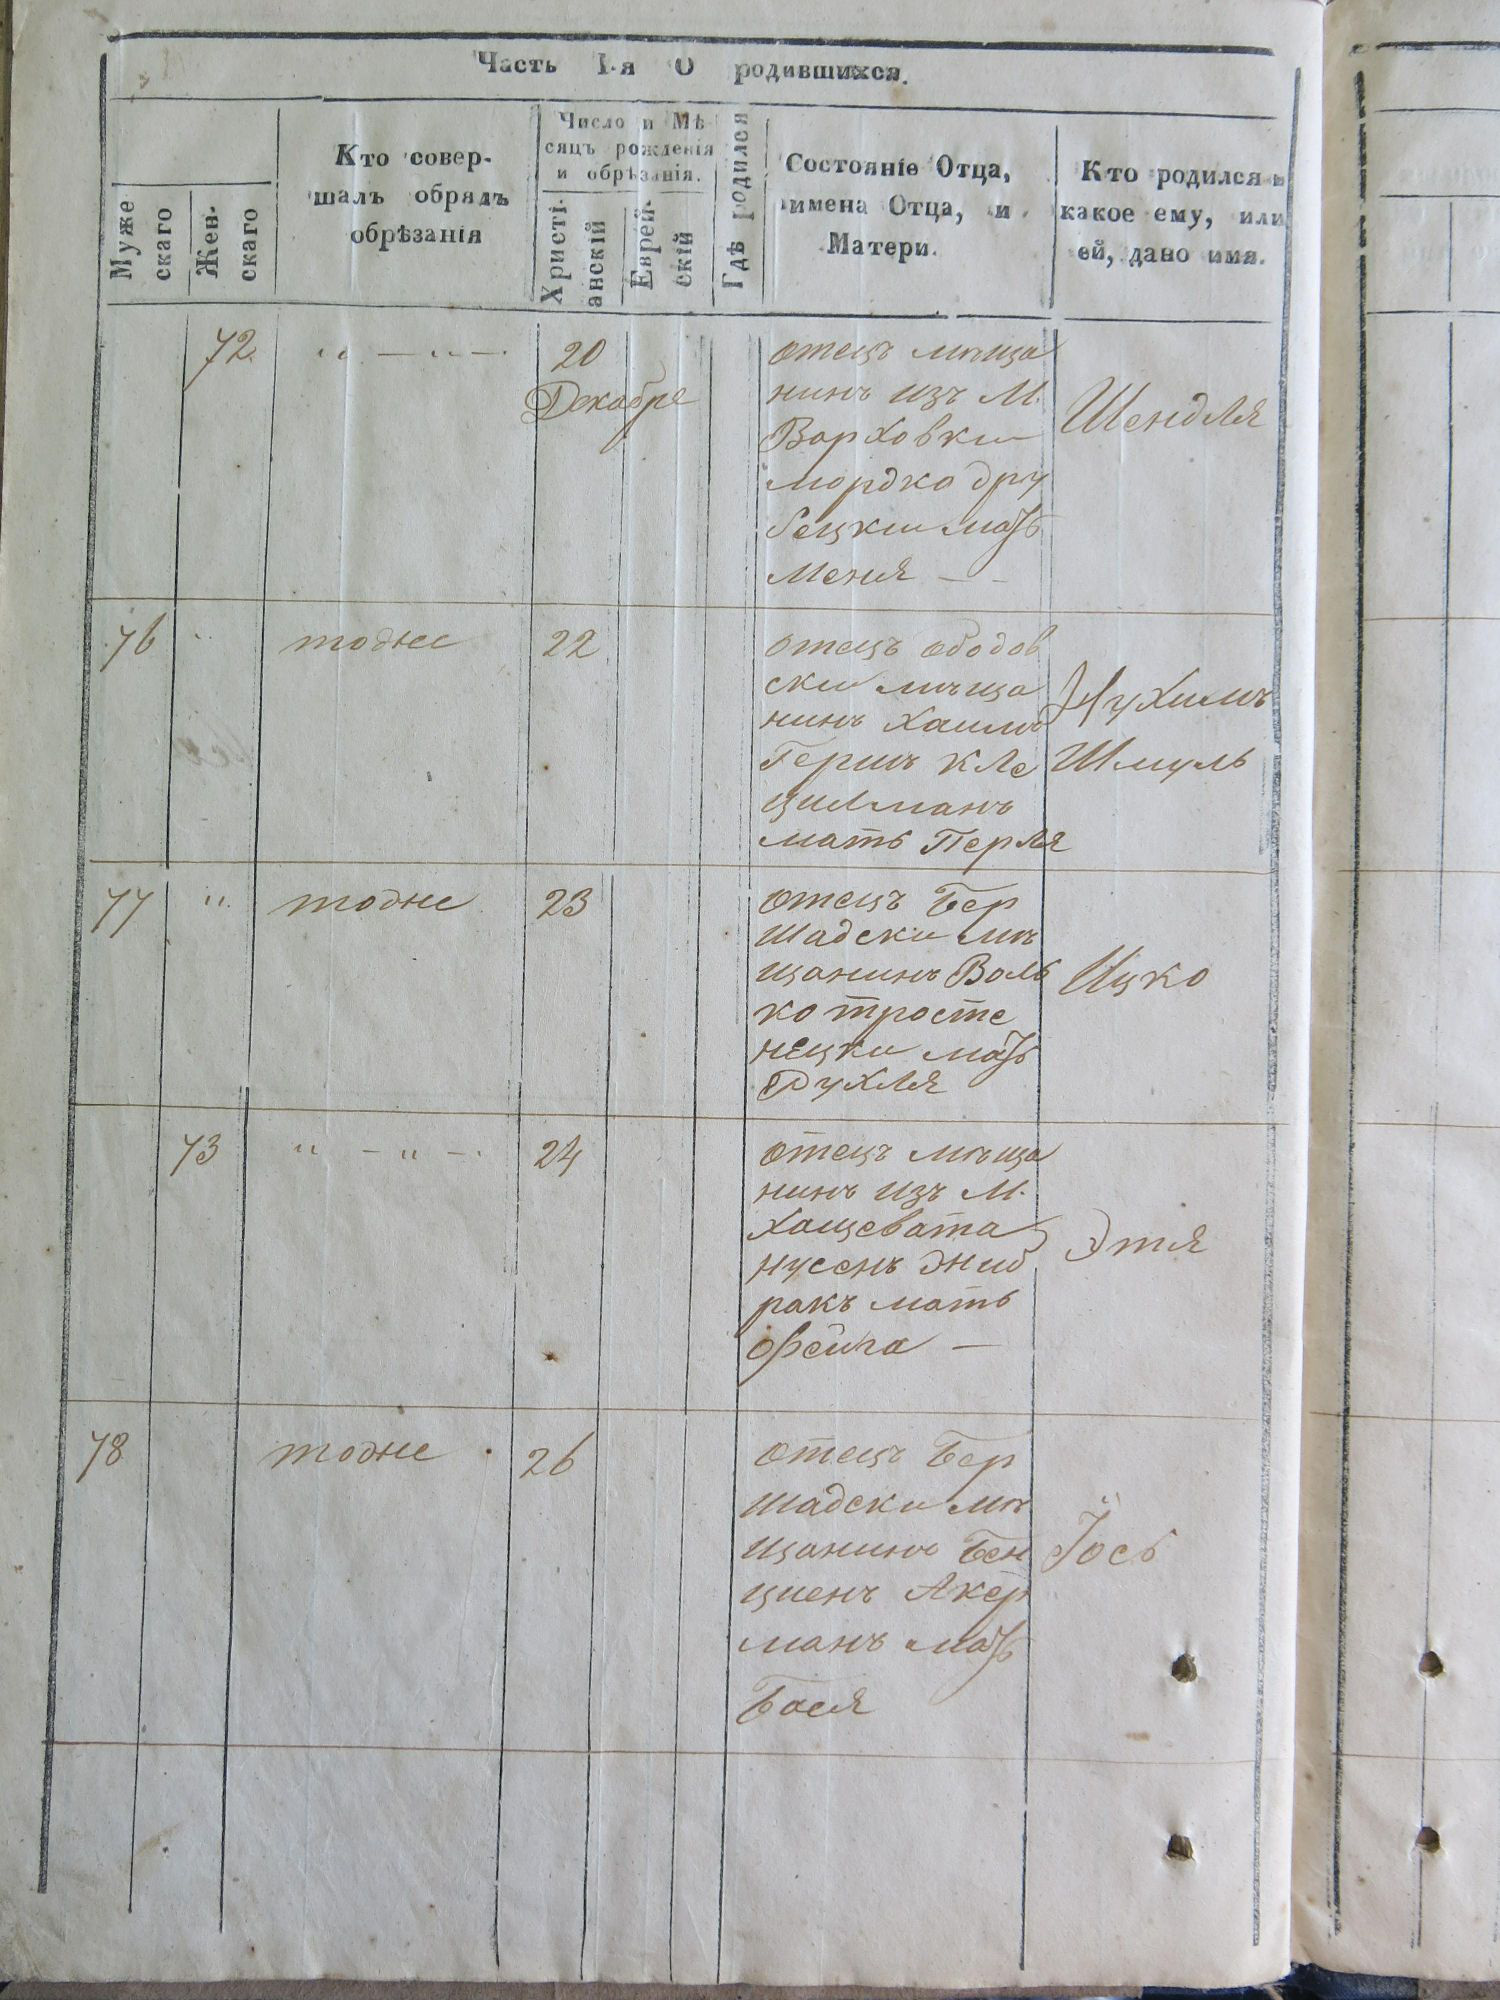 Часть I-я О родившихся.
Муже
скаго
Жен-
скаго
Кто совер-
шалъ обрядъ
обрѣзанія
Число и Мѣ-
сяцъ рожденія
и обрѣзанія.
Христі-
анскій
Еврей-
скій
Гдѣ родился
Состояніе Отца,
имена Отца, и
Матери.
Кто родился и
какое ему, или
ей, дано имя.
72. „ — „ — . 20
Декабре
отецъ мѣща
нинъ изъ М.
Верховки
мордко дру
бецки мать
Меня — -
Шендля
76 тодже 22
отецъ ободов
ски мѣща
нинъ Хаимъ
Гершъ Кле
цилманъ
мать Перля
Нухимъ
Шмуль
77 „ тодже 23
отецъ Бер
шадски мѣ
щанинъ Воль
ко тросте
нецки мать
Рухля
Ицко
73 „ - „ - . 24
отецъ мѣща
нинъ изъ М.
Хащевата
нусенъ
ракъ мать
Фейга —
Этя
78 тодже 26
отецъ Бер
шадски мѣ
щанинъ Бен
циенъ Акер
манъ мать
Бася
Іось